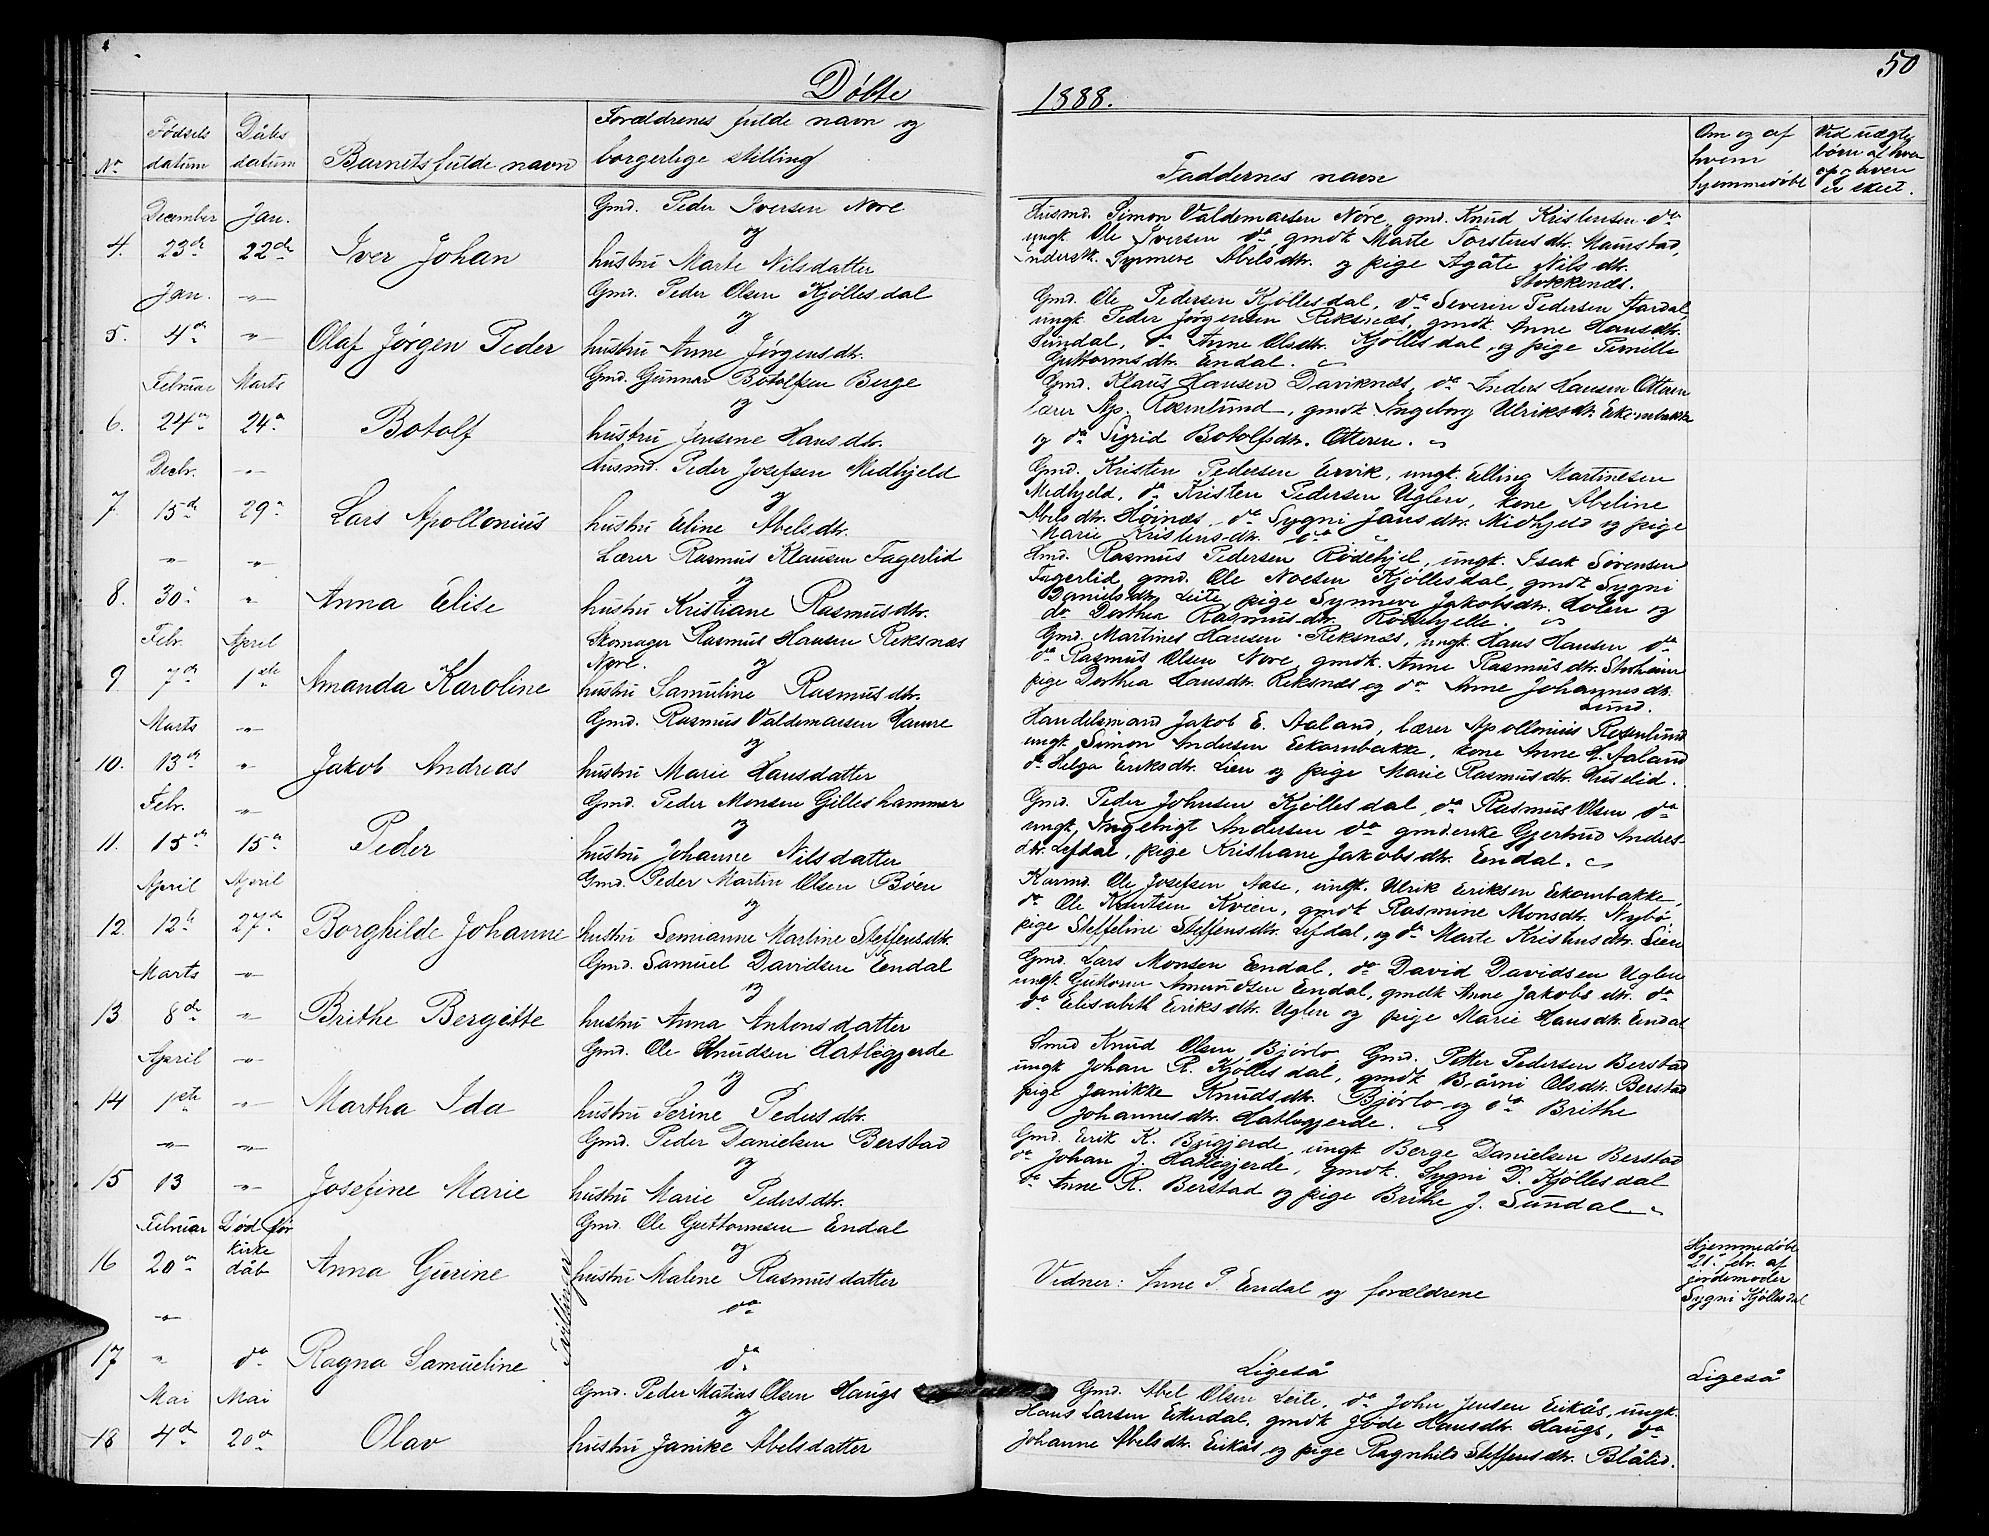 50
Døbte
1888.
No
Fødsels datum
Dåbs datum
Barnets fulde navn
Forældrenes fulde navn og borgerlige stilling
Faddernes navn
Om og af hvem hjemmedøbt
Ved uægte børn af hvem
December Jan.
4. 23de 22de Iver Johan
Gmd. Peder Iversen Nore
og
hustru Marte Nilsdatter
Husmd. Simon Valdemarsen Nore, gmd. Knud Kristensen do
ungk. Ole Iversen do, gmdk Marte Torstensdtr. Maurstad,
Synneve Abelsdtr. og pige Agåte Nilsdtr.
Stokkenæs.
Jan. -"-
5. 4de -"- Olaf Jørgen Peder
Gmd. Peder Olsen Kjøllesdal
og
hustru Anne Jørgensdtr.
Gmd. Ole Pedersen Kjøllesdal, do Severin Pedersen Aardal,
ungk. Peder Jørgensen Reksnæs, gmdk. Anne Hansdtr.
Sundal, do Anne Olsdtr. Kjøllesdal, og pige Pernille
Guttormsdtr. Endal.
Februar Marts
6. 24de 24de Botolf
Gmd. Gunnar Botolfsen Berge
og
hustru Jensine Hansdtr.
Gmd. Klaus Hansen Daviknæs, do Anders Hansen Otteren
lærer Ap. Rosenlund, gmdk Ingeborg Ulriksdtr. Eikornbakke
og do Sigrid Botolfsdtr. Otteren.
Decbr. -"-
7. 15de 29de Lars Apollonius
Husmd. Peder Josefsen Midhjeld
og
hustru Eline Abelsdtr.
Gmd. Kristen Pedersen Ervik, ungk. Elling Martinesen
Midhjeld, do Kristen Pedersen Uglen, kone Abeline
Abelsdtr. Høinæs, do Sygni Jansdtr. Midhjeld og pige
Marie Kristensdtr. do
-"- -"-
8. 30de " Anna Elise
Lærer Rasmus Klausen Fagerlid
og
hustru Kristiane Rasmusdtr.
Gmd. Rasmus Pedersen Rødehjel, ungk. Isak Sørensen
Fagerlid, gmd. Ole Noesen Kjøllesdal, gmdk Sygni
Danielsdtr. Leite, pige Synneve Jakobsdtr. Holen og
do Dorthea Rasmusdtr. Rødehjelle.
Febr. April
9 7de 1ste Amanda Karoline
Skomager Rasmus Hansen Reksnæs
Nore. og
hustru Samuline Rasmusdtr.
Gmd. Martines Hansen Reksnæs, ungk. Hans Hansen do
do Rasmus Olsen Nore, gmdk. Anne Rasmusdtr.
pige Dorthea Hansdtr. Reksnæs og do Anne Johannesdtr.
Lund.
Marts -"-
10. 13de " Jakob Andreas
Gmd. Rasmus Valdemarsen Hamre
og
hustru Marie Hansdatter
Handelsmand Jakob E. Aaland, lærer Apollonius Rosenlund
ungk. Simon Andersen Eekornbakke, kone Anne H. Aaland
do Helga Eriksdtr. Lien og pige Marie Rasmusdtr. Huselid.
Febr. -"-
11. 15de 15de Peder
Gmd. Peder Monsen Gilleshammer
og
hustru Johanne Nilsdatter
Gmd. Peder Johnsen Kjøllesdal, do Rasmus Olsen do
ungk. Ingebrigt Andersen do gmdenke Gjertrud Andres-
dtr. Lefdal, pige Kristiane Jakobsdtr. Endal.
April April
12. 12te 27de Borghilde Johanne
Gmd. Peder Martin Olsen Bøen
og
hustru Semianne Martine Steffensdtr.
Karmd. Ole Josefsen Aase, ungk. Ulrik Eriksen Eekornbakke,
do Ole Knutsen Kvien, gmdk Rasmine Monsdtr. Nybø,
pige Steffeline Steffensdtr. Lefdal, og do Marte Kristensdtr. Lien
Marts -"-
13 8de " Brithe Bergitte
Gmd. Samuel Davidsen Endal
og
hustru Anna Antonsdatter
Gmd. Lars Monsen Endal, do David Davidsen Uglen
ungk Guttorm Amundsen Endal, gmdk Anne Jakobsdtr. do
do Elisabeth Eriksdtr. Uglen og pige Marie Hansdtr. Endal
April -"-
14 1ste -"- Martha Ida
Gmd. Ole Knudsen Hatlegjerde
og
hustru Serine Pedersdtr.
Smed Knud Olsen Bjørlo, Gmd. Petter Pedersen Berstad
ungk Johan R. Kjøllesdal, gmdk Bårni Olsdtr. Berstad
pige Janikke Knudsdtr. Bjørlo og do Brithe
Johannesdtr. Hatlegjerde.
-"- -"-
15 13 -"- Josefine Marie
Gmd. Peder Danielsen Berstad
og
hustru Marie Pedersdtr.
Gmd. Erik K. Bugjerde, ungk Berge Danielsen Berstad
do Johan J. Hatlegjerde, gmdk. Sygni D. Kjøllesdal
do Anne R. Berstad og pige Brithe J. Sundal
Februar Død før
16 20de kirke dåb Anna Gurine
Gmd. Ole Guttormsen Endal
og
hustru Malene Rasmusdatter
Vidner: Anne P. Endal og forældrene
Hjemmedøbt
21. febr. af
jordemoder
Sygni Kjøllesdal
Tvillinger
-"-
17 " do Ragna Samueline
do
do
Ligeså
Ligeså
Mai Mai
18 4de 20de Olav
Gmd. Peder Matias Olsen Haugs
og
hustru Janike Abelsdatter
Gmd. Abel Olsen Leite, do John Jensen Eikås, ungk.
Hans Larsen Ekerdal, gmdk Jøde Hansdtr. Haugs, do
Johanne Abelsdtr. Eikås og pige Ragnhild Steffensdtr. Blålid.